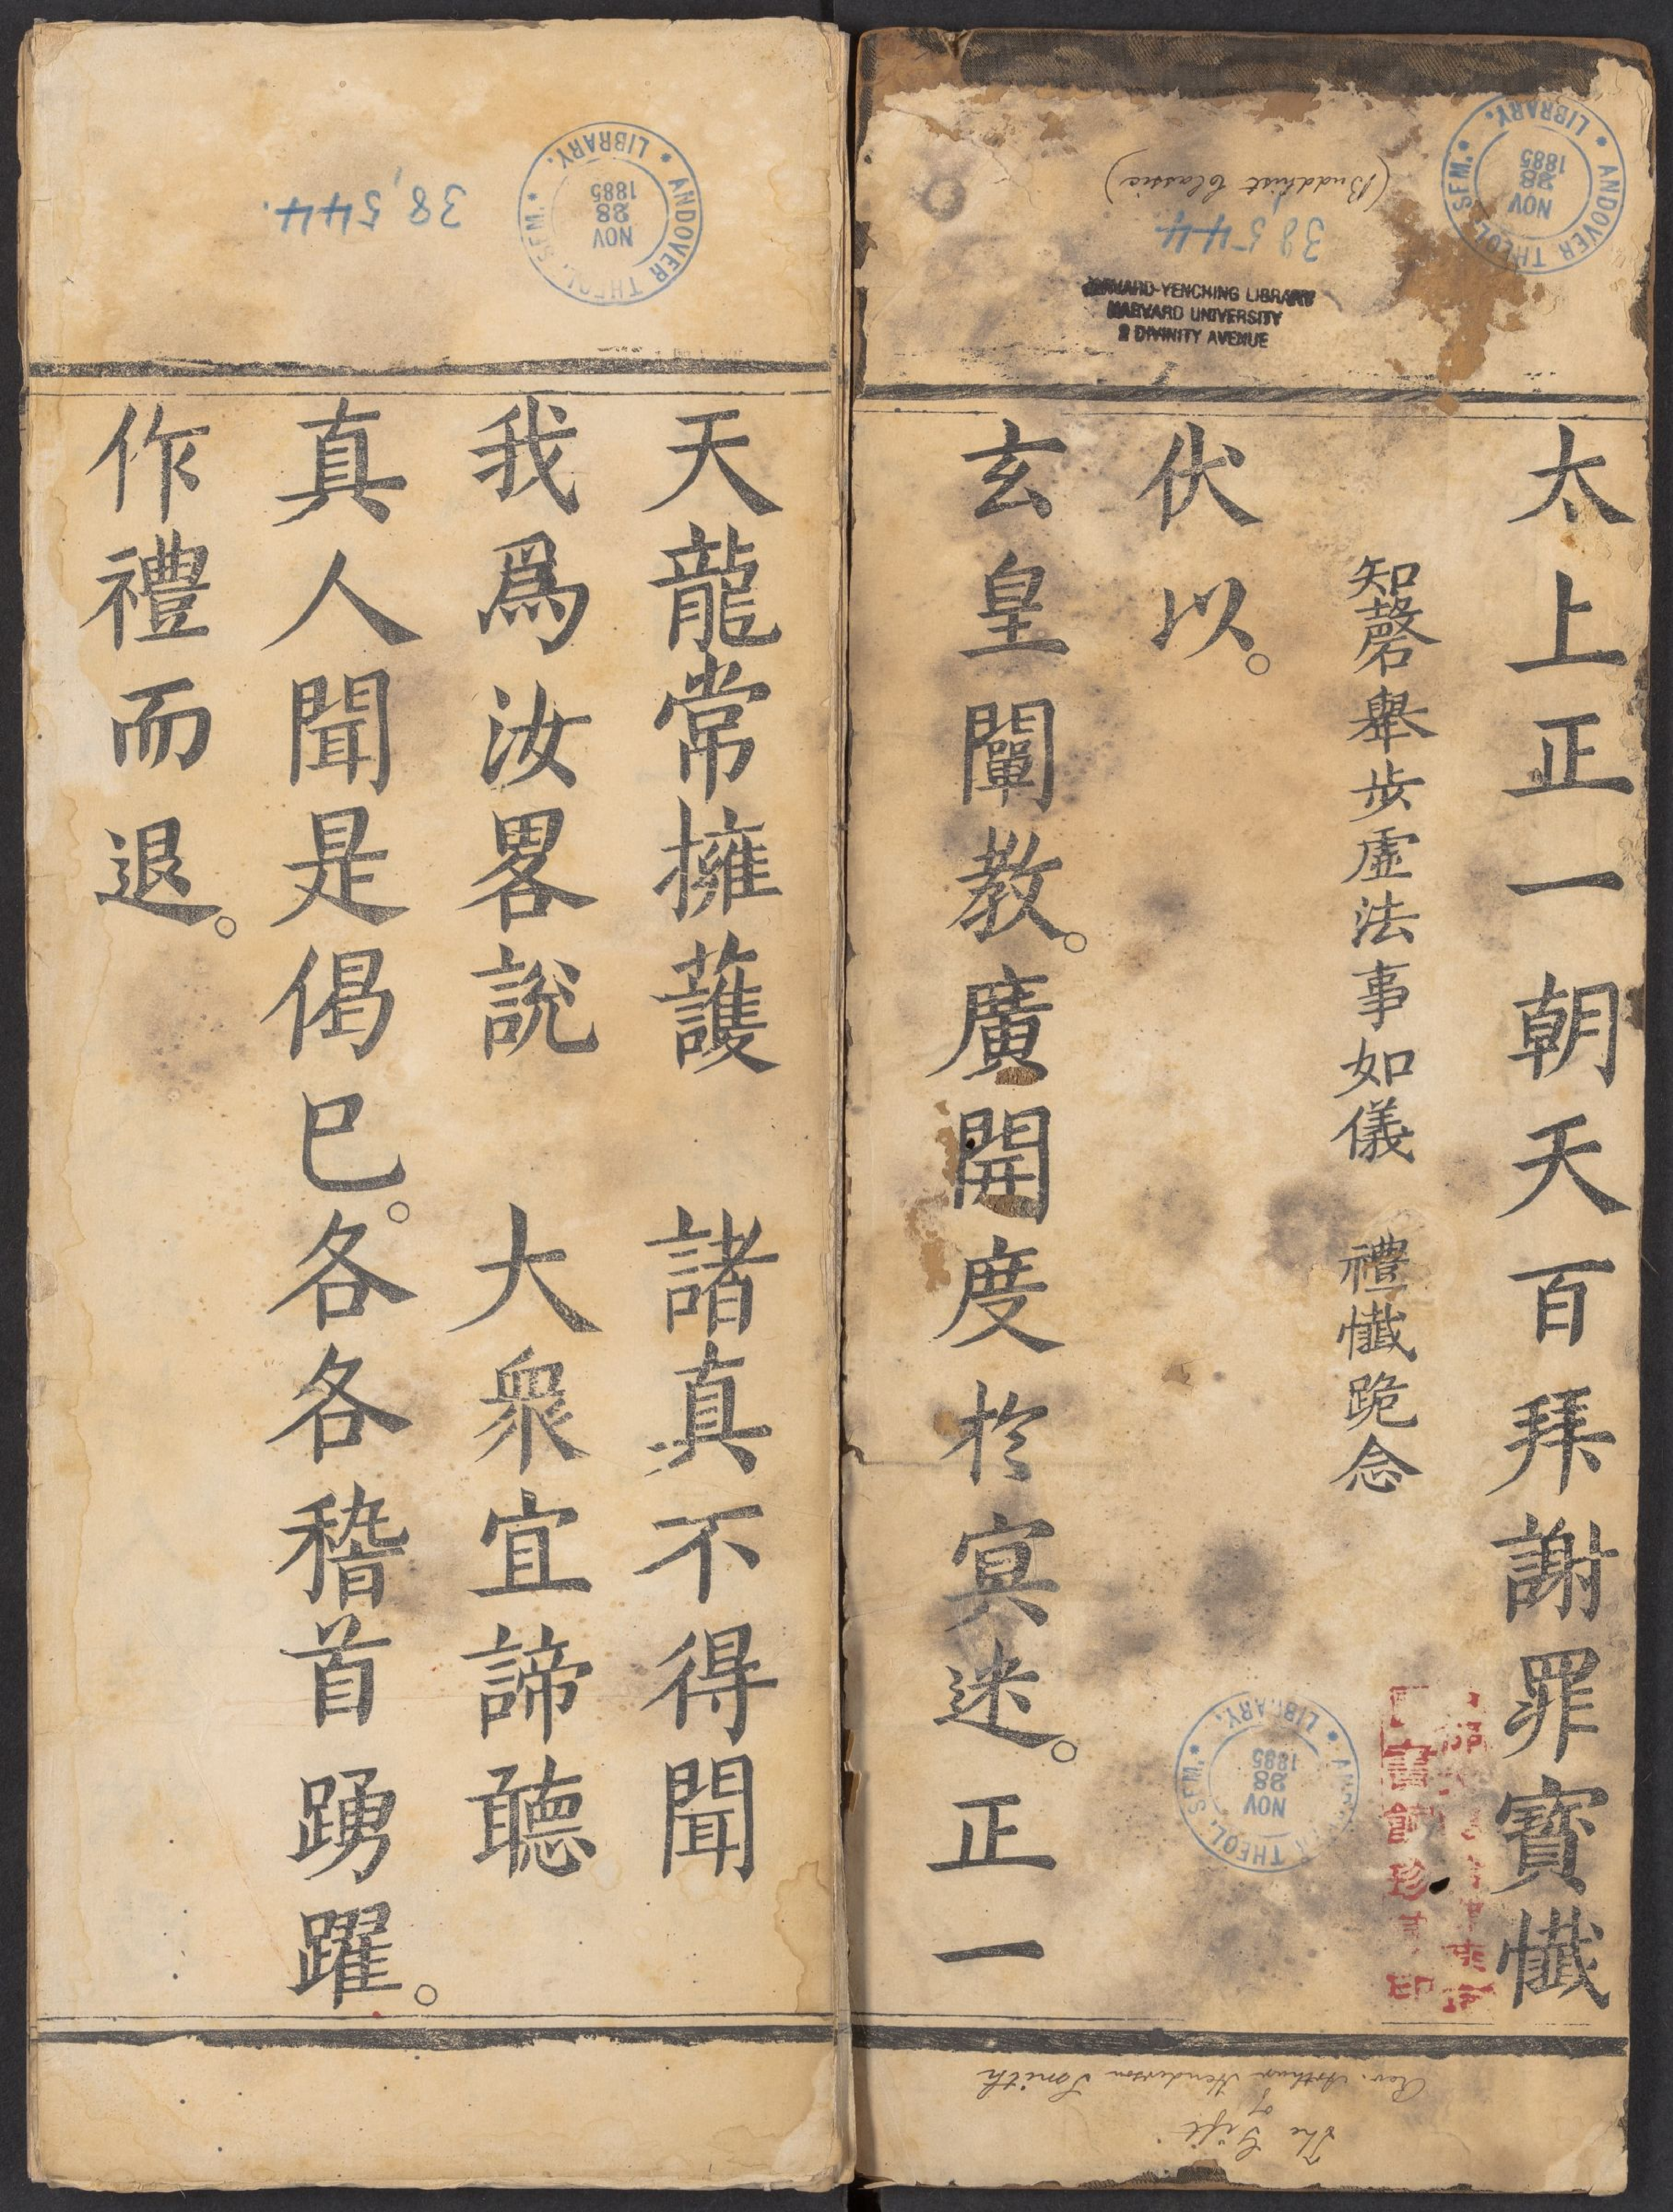 太上正一朝天百拜謝罪寶懺
知磬舉步虛法事如儀　禮懺跪念
伏以。
玄皇闡教。廣開度於冥迷。正一
天龍常擁護　諸真不得聞
我爲汝畧說　大衆宜諦聽
真人聞是偈巳。各各稽首踴躍。
作禮而退。
ANDOVER THEOL. SEM. LIBRARY.
NOV
28
1885
(Buddhist Classic)
38,544
HARVARD-YENCHING LIBRARY
HARVARD UNIVERSITY
2 DIVINITY AVENUE
ANDOVER THEOL. SEM. LIBRARY.
NOV
28
1885
The Gift
of
Rev. Arthur Henderson Smith
ANDOVER THEOL. SEM. LIBRARY.
NOV
28
1885
38,544.